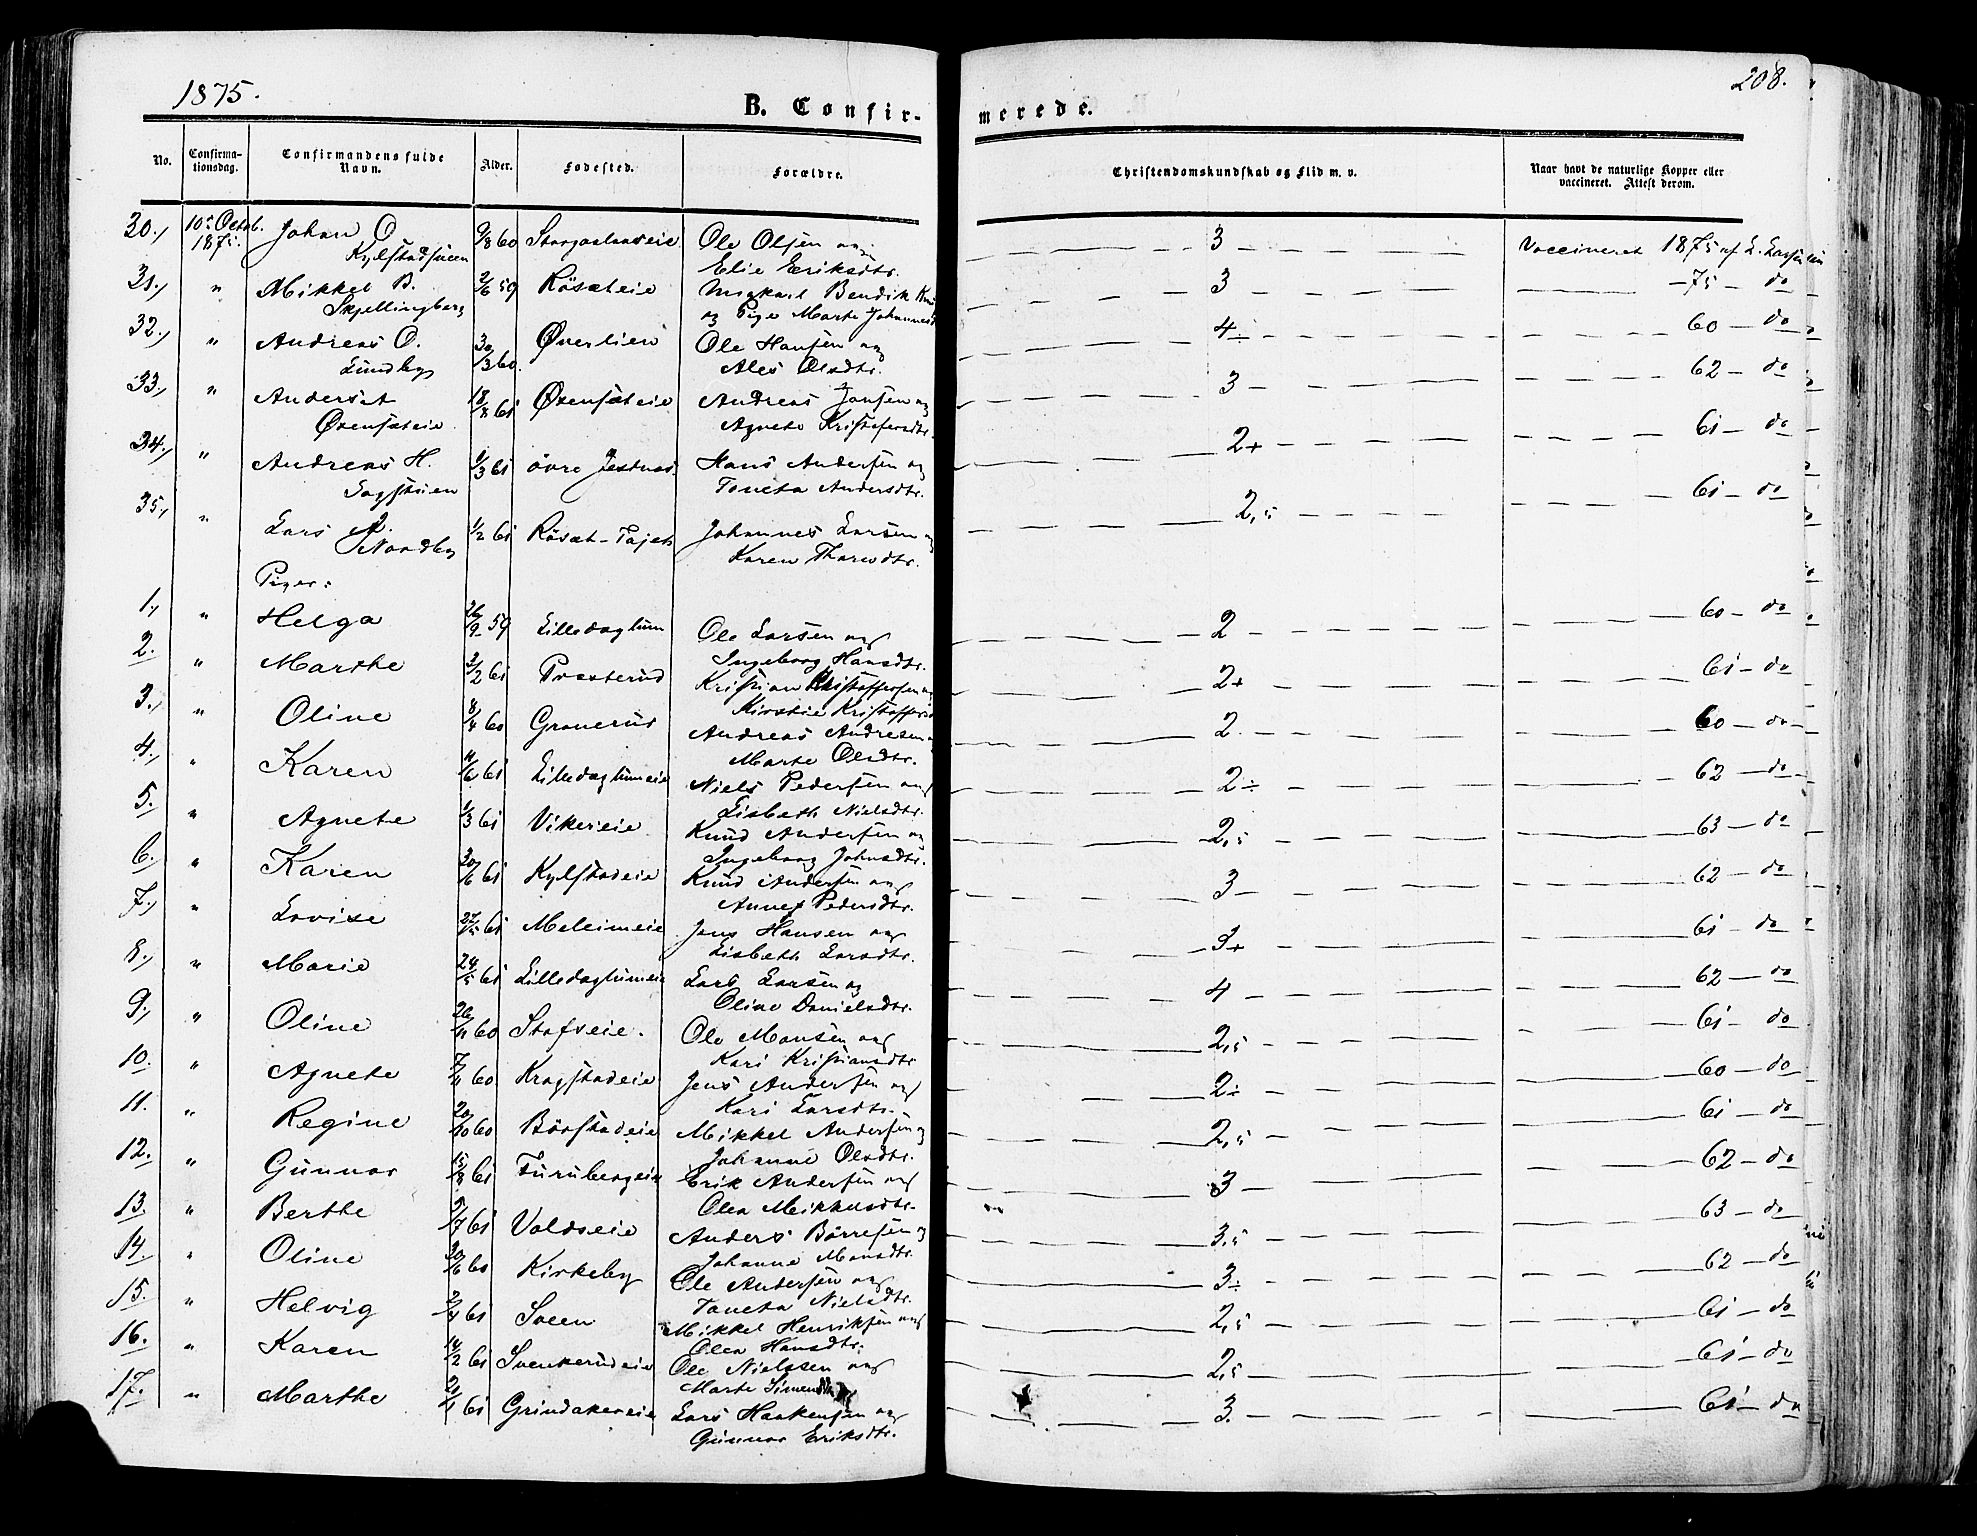 1875.
208.
B. Confirmerede.
No. Confirmationsdag. Confirmandens fulde Navn. Alder. Fødested. Forældre. Christendomskundskab og Flid m. v. Naar havt de naturlige Kopper eller vaccineret. Attest derom.
30., 10de Octob. 1875. Johan O. 60 Ole Olsen og 3 Vaccineret 1875 af L.
Kylstadsveen Elie Eriksdtr.
31., " Mikkel B. 2/6 59 Røsæteie Bendik 3 — 75 — do
Skjellingberg og Pige Marte Johannesd
32., " Andreas O. 30/3 60. Øverlien Ole Hansen og 4÷ 60 — do
Lundby Ales Olsdtr.
33., " Anderset 18/8 61 Øxensæteie Andreas Jansen og 3 62 — do
Øxensæteie Agnete Kristofersdtr.
34., " Andreas H. 1/3 61 øvre Jesnes Hans Andersen og 2+ 61 — do
Sagstuen Toneta Andersdtr.
35., " Lars J. 1/2 61 Røsæt-Tajet Johannes Larsen og 2,5 61 — do
Nordby Karen Tharudtr.
Piger:
1., " Helga 26/9 59 Lilledaglum Ole Larsen og 2 60 — do
Ingeborg Hansdtr.
2. " Marthe 3/2 61 Præsterud Kristian Kristoffersen og 2+ 61 — do
Kirstie Kristoffersd
3., " Oline 8/4 60 Granerud Andreas Andresen 2. 60 — do
Marte Olsdtr.
4., " Karen 11/6 61 Lilledaglumeie Niels Pedersen og 2÷ 62 — do
Lisbeth Nielsdtr.
5. " Agnete 1/3 61 Vikereie Knud Andersen og 2,5 63 — do
Ingeborg Johnsdtr.
6., " Karen 30/6 61 Kylstadeie Knud Andersen og 3 62 — do
Anne Pedersdtr.
7., " Lovise 27/5 61 Meleimeie Jens Hansen og 3+ 61 — do
Lisbeth Larsdtr.
8., " Marie 24/5 61 Lilledaglumeie Lars Larsen og 4 62 — do
Oline Danielsdtr.
9., " Oline 26/11 60 Stafseie. Ole Monsen og 2,5 61 — do
Kari Kristiansdtr
10. " Agnete 7/11 60 Kragstadeie Jens Andersen og 2÷ 60 — do
Kari Larsdtr.
11. " Regine 20/10 60 Børstadeie Mikkel Andersen og 2,5 61 — do
Johanne Olsdtr.
12. " Gunnor 15/8 61 Furubergeie Erik Andersen og 3 62 — do
Olea Mikkelsdtr.
13. " Berthe 5/7 61 Voldseie Anders Børresen og 3,5 63 — do
Johanne Monsdtr.
14. " Oline 30/6 60 Kirkeby Ole Andersen og 3÷ 62 — do
Toneta Nielsdtr.
15. " Helvig 61 Sveen Mikkel Henriksen og 2,5 61 — do
Olea Hansdtr.
16. " Karen 14/2 61 Svenkerudeie Ole Nielssen og 2,5 61 — do
Marte Simensdtr
17. " Marthe 61 Grindakereie Lars Haakensen og 3. 61 — do
Gunnor Eriksdtr.